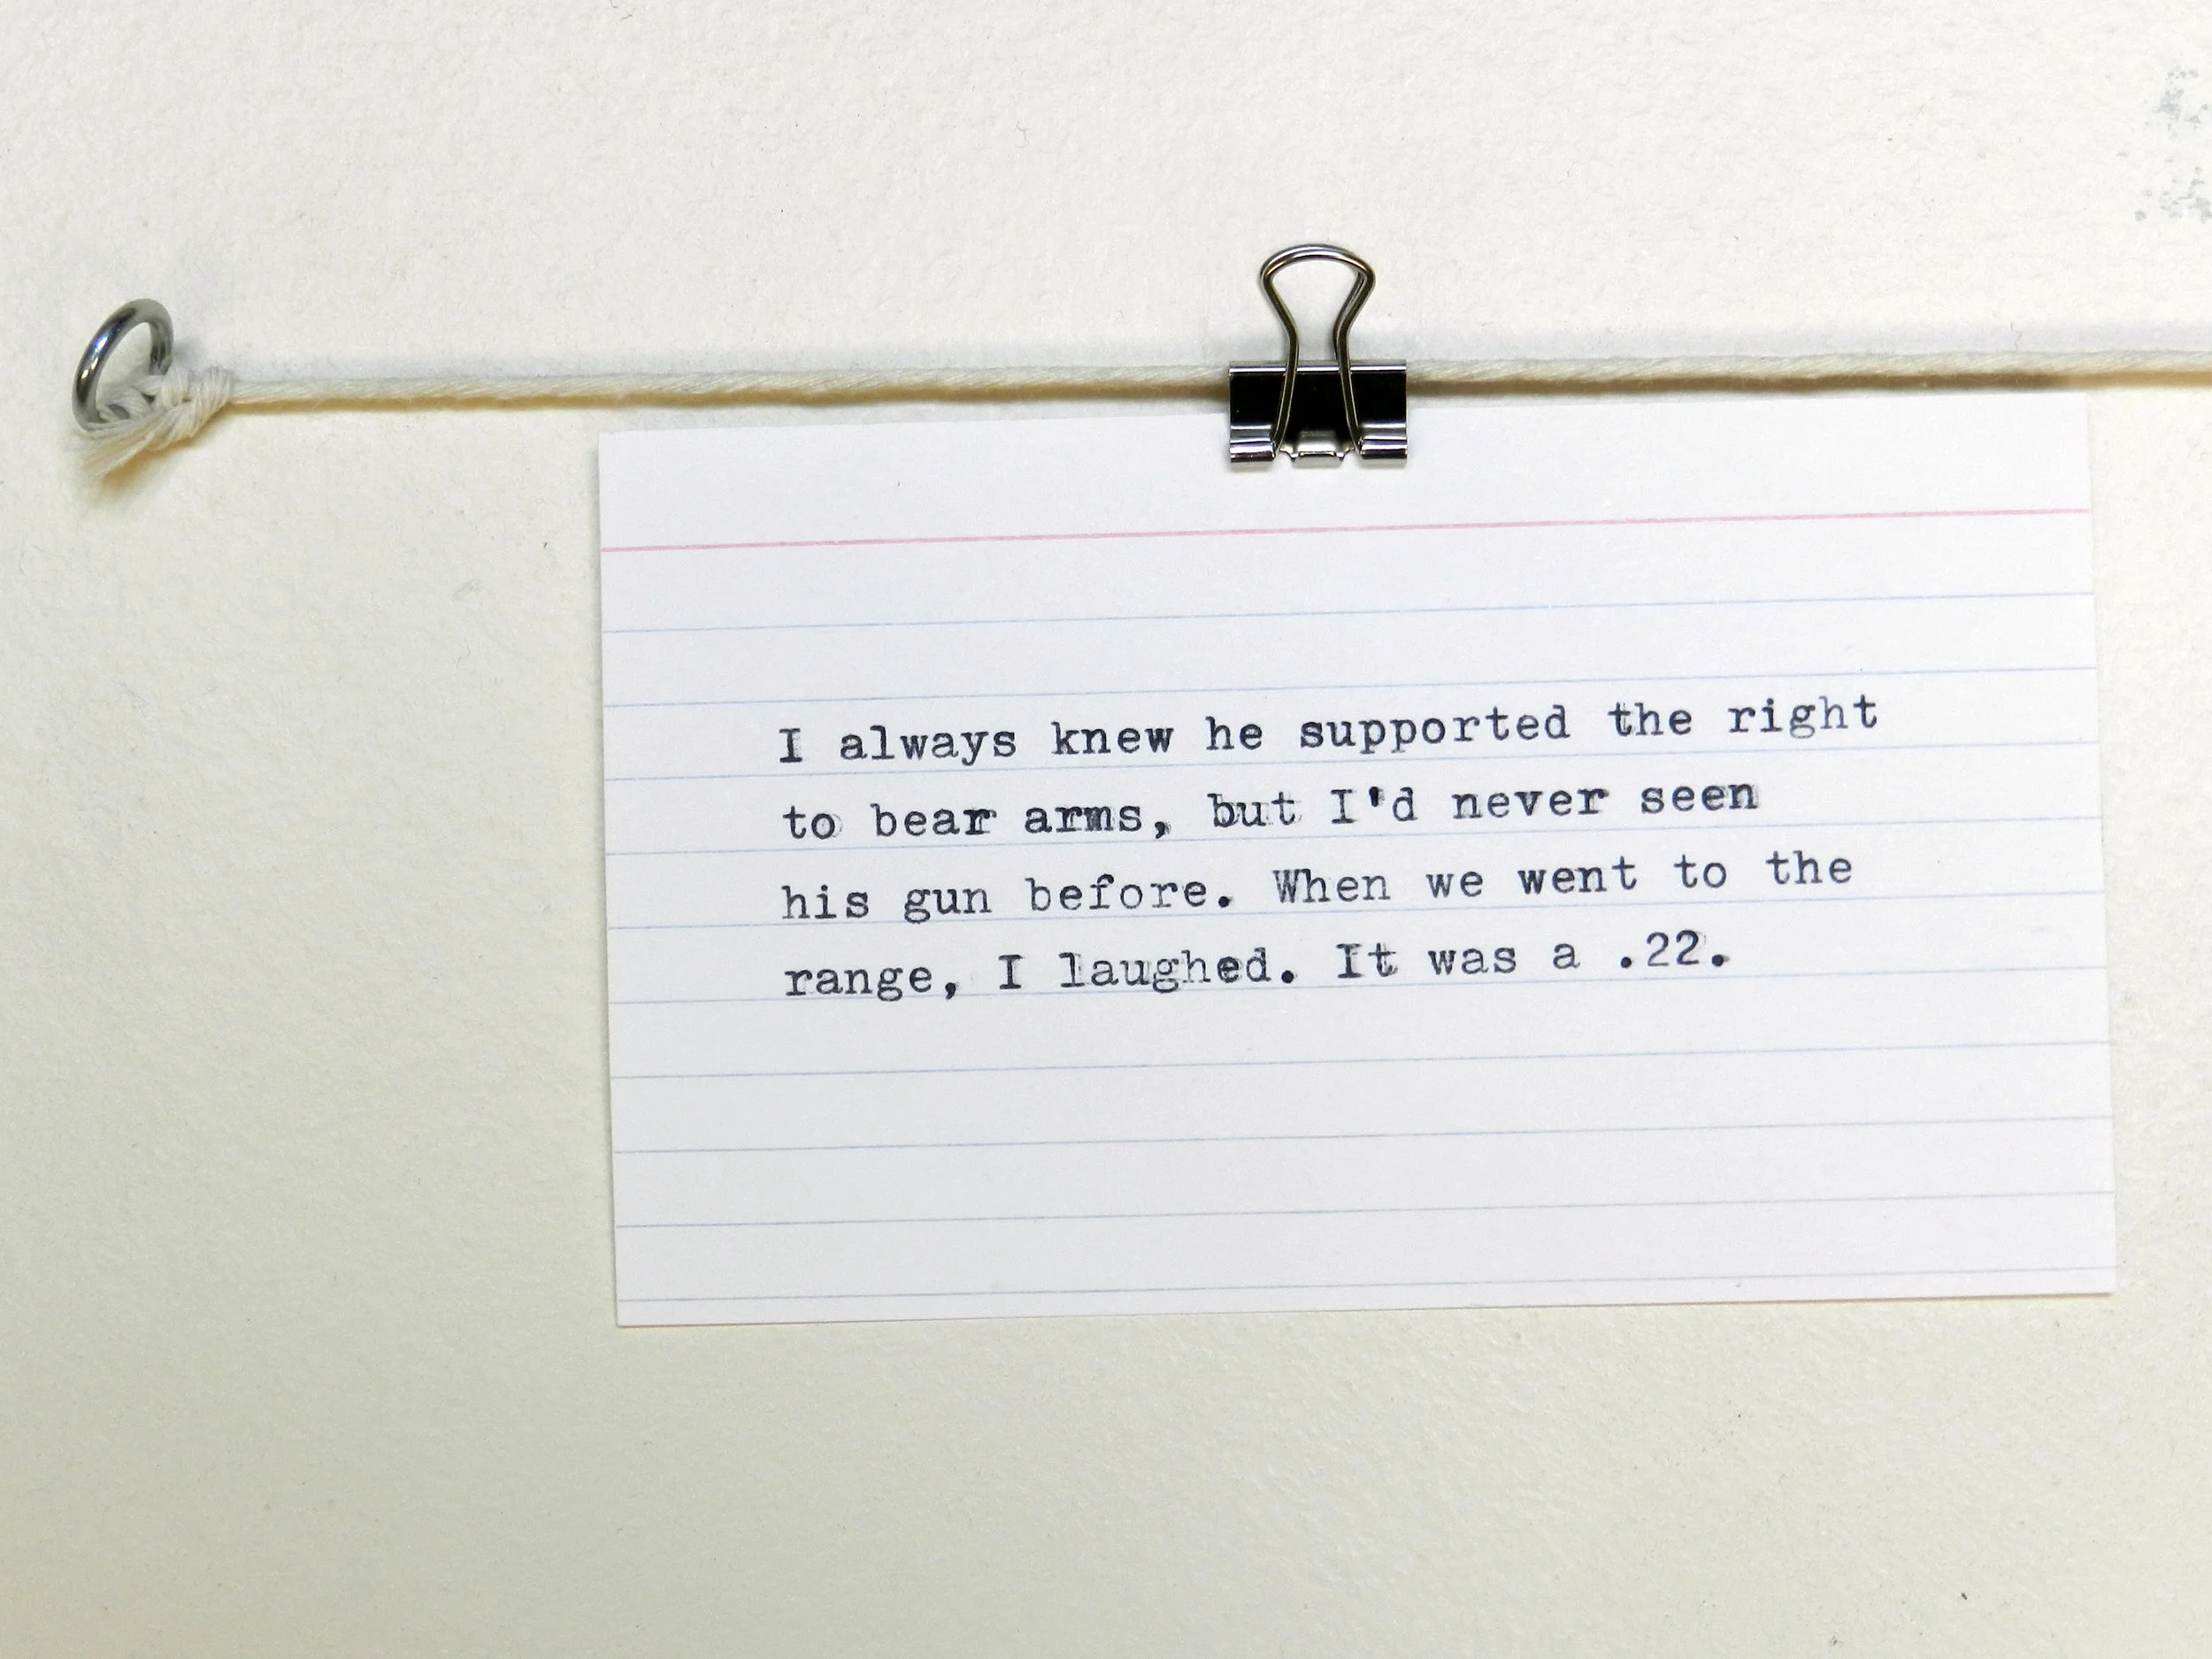 I always knew he supported the right
to bear arms, but I'd never seen
his gun before. When we went to the
range, I laughed. It was a .22.